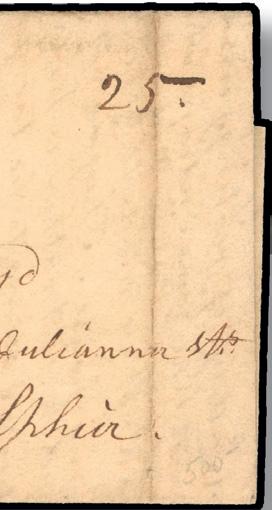 25.
Julianna st.
lphia.
500